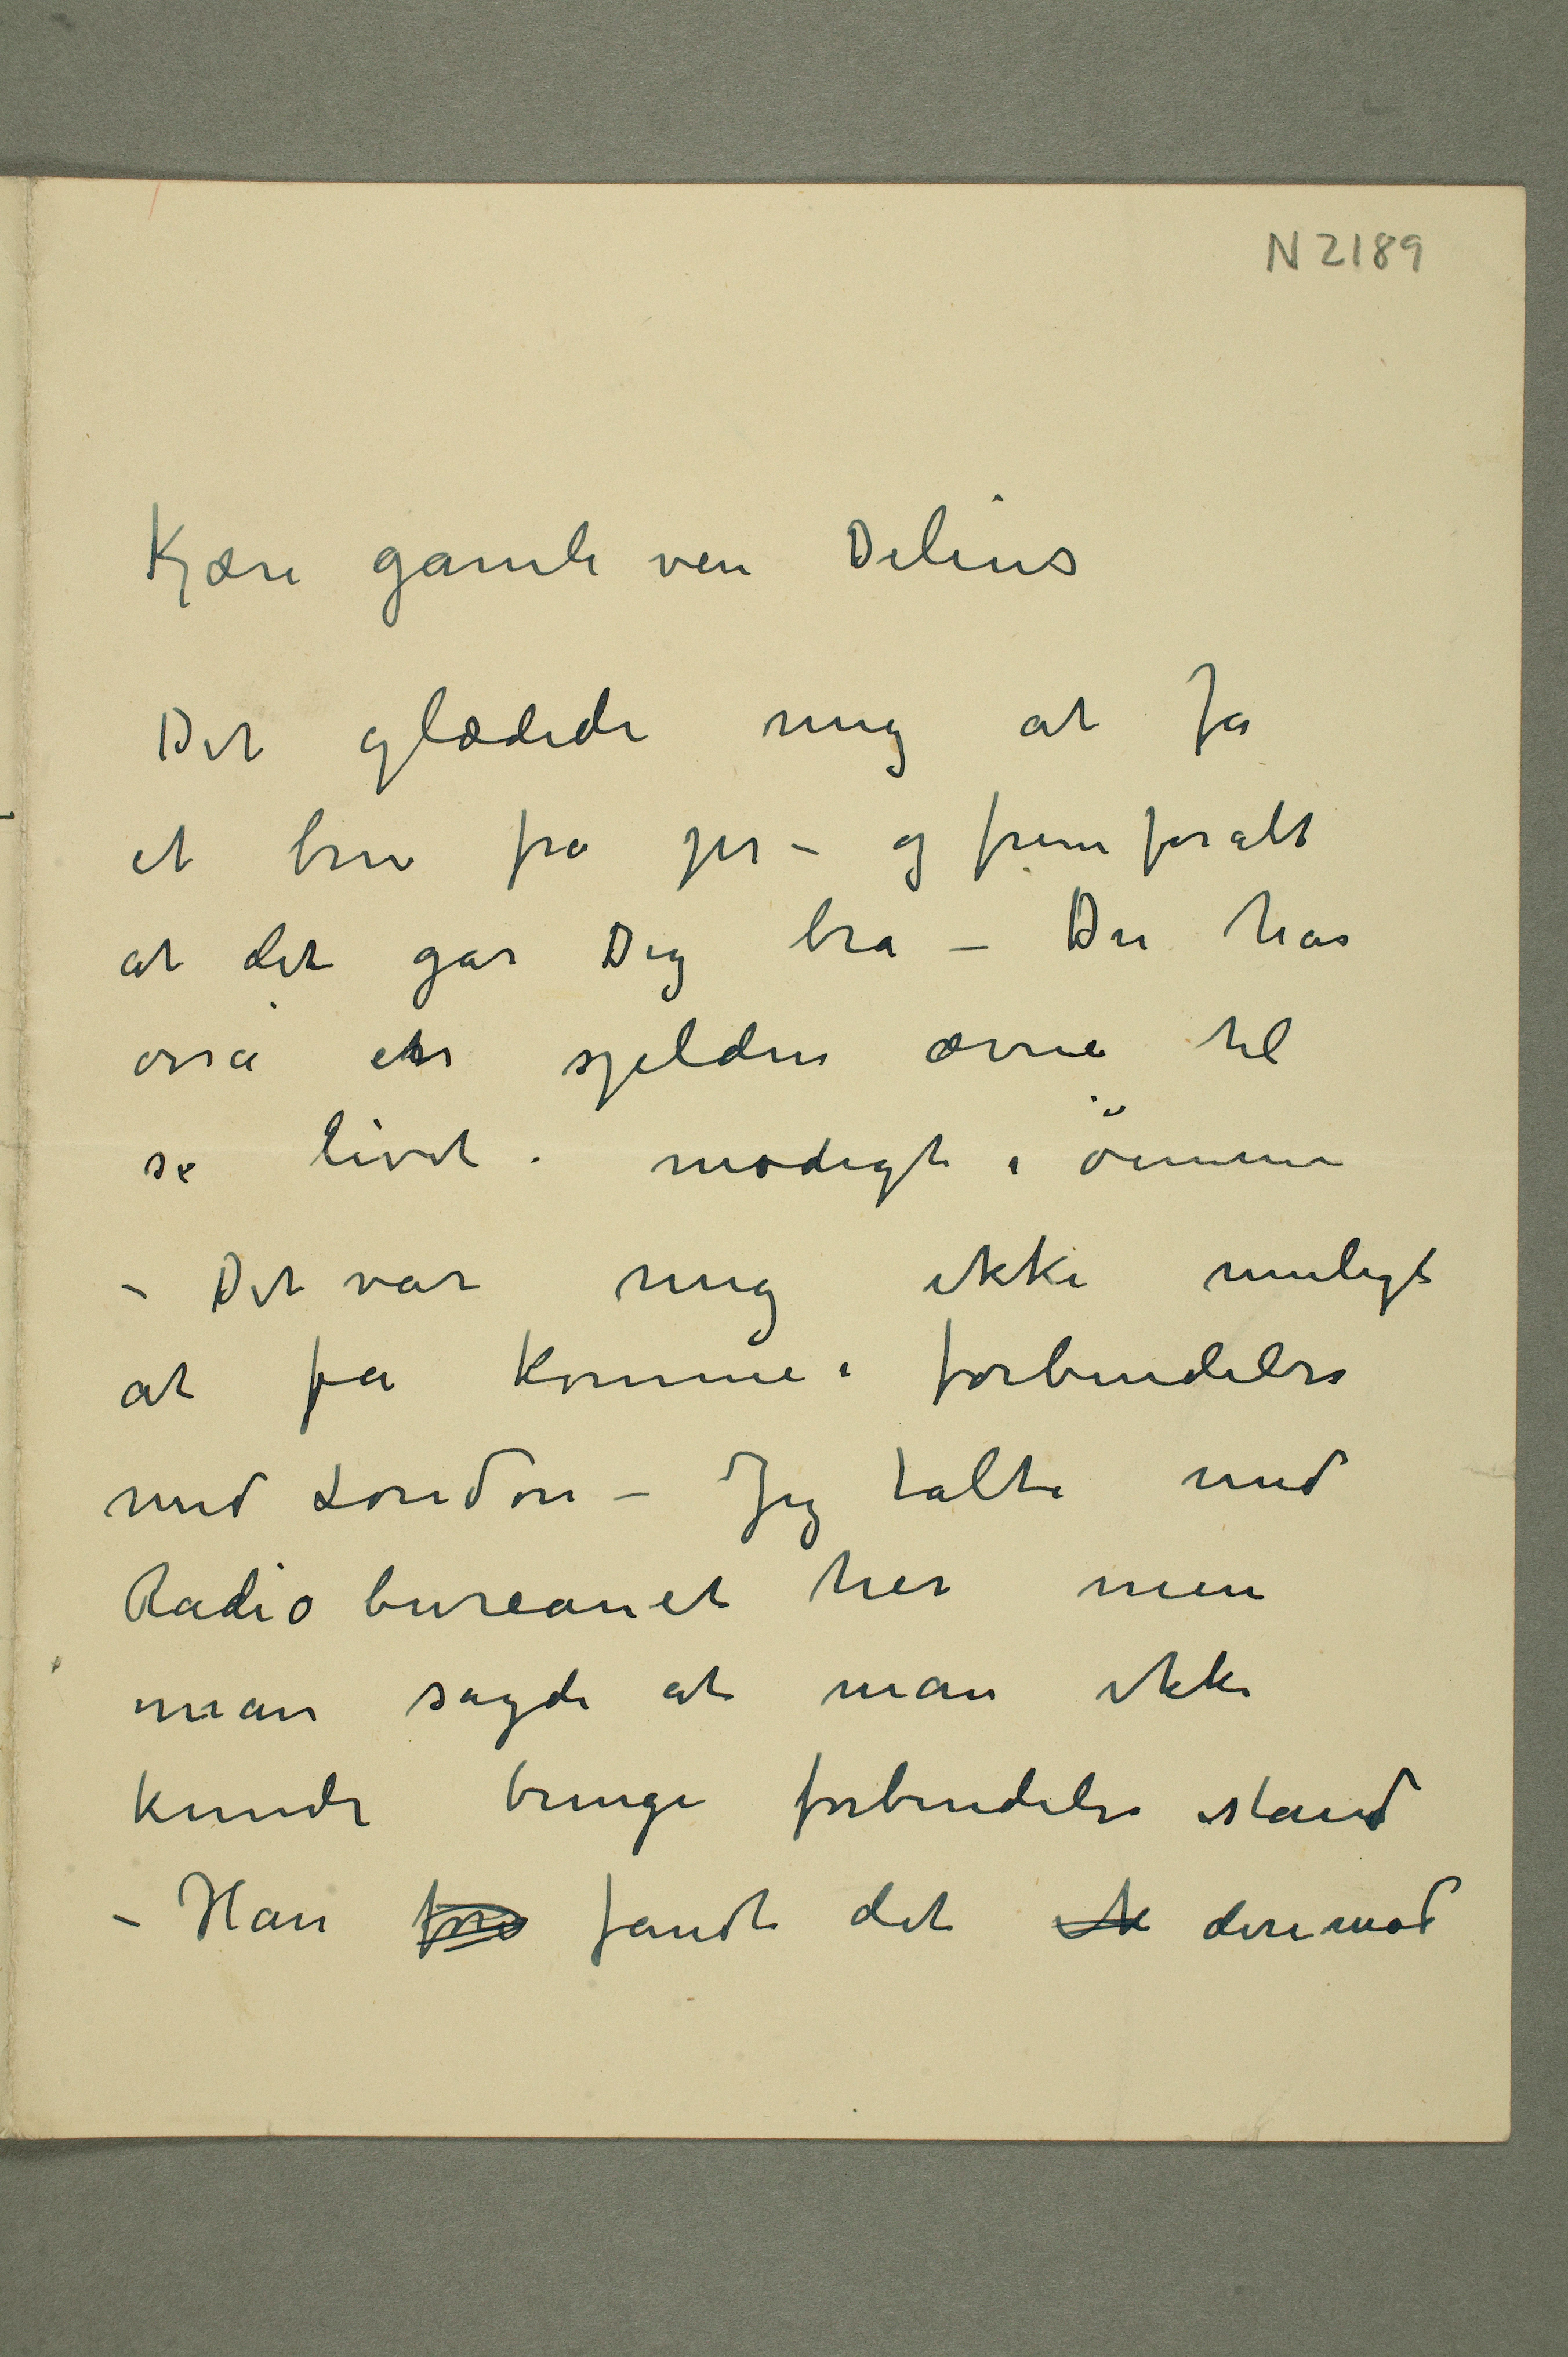 N 2189
Kjære gamle ven Delius
Det glædede mig at få
et brev fra jer – og fremforalt
at det går Dig bra – Du har
osså en sjelden ævne til
se livet modigt i öinene
– Det var mig ikke muligt
at få komme i forbindelse
med London – Jeg talte med
Radiobureauet her men
man sagde at man ikke
kunde bringe forbindelse istand
– Han fandt det derimod